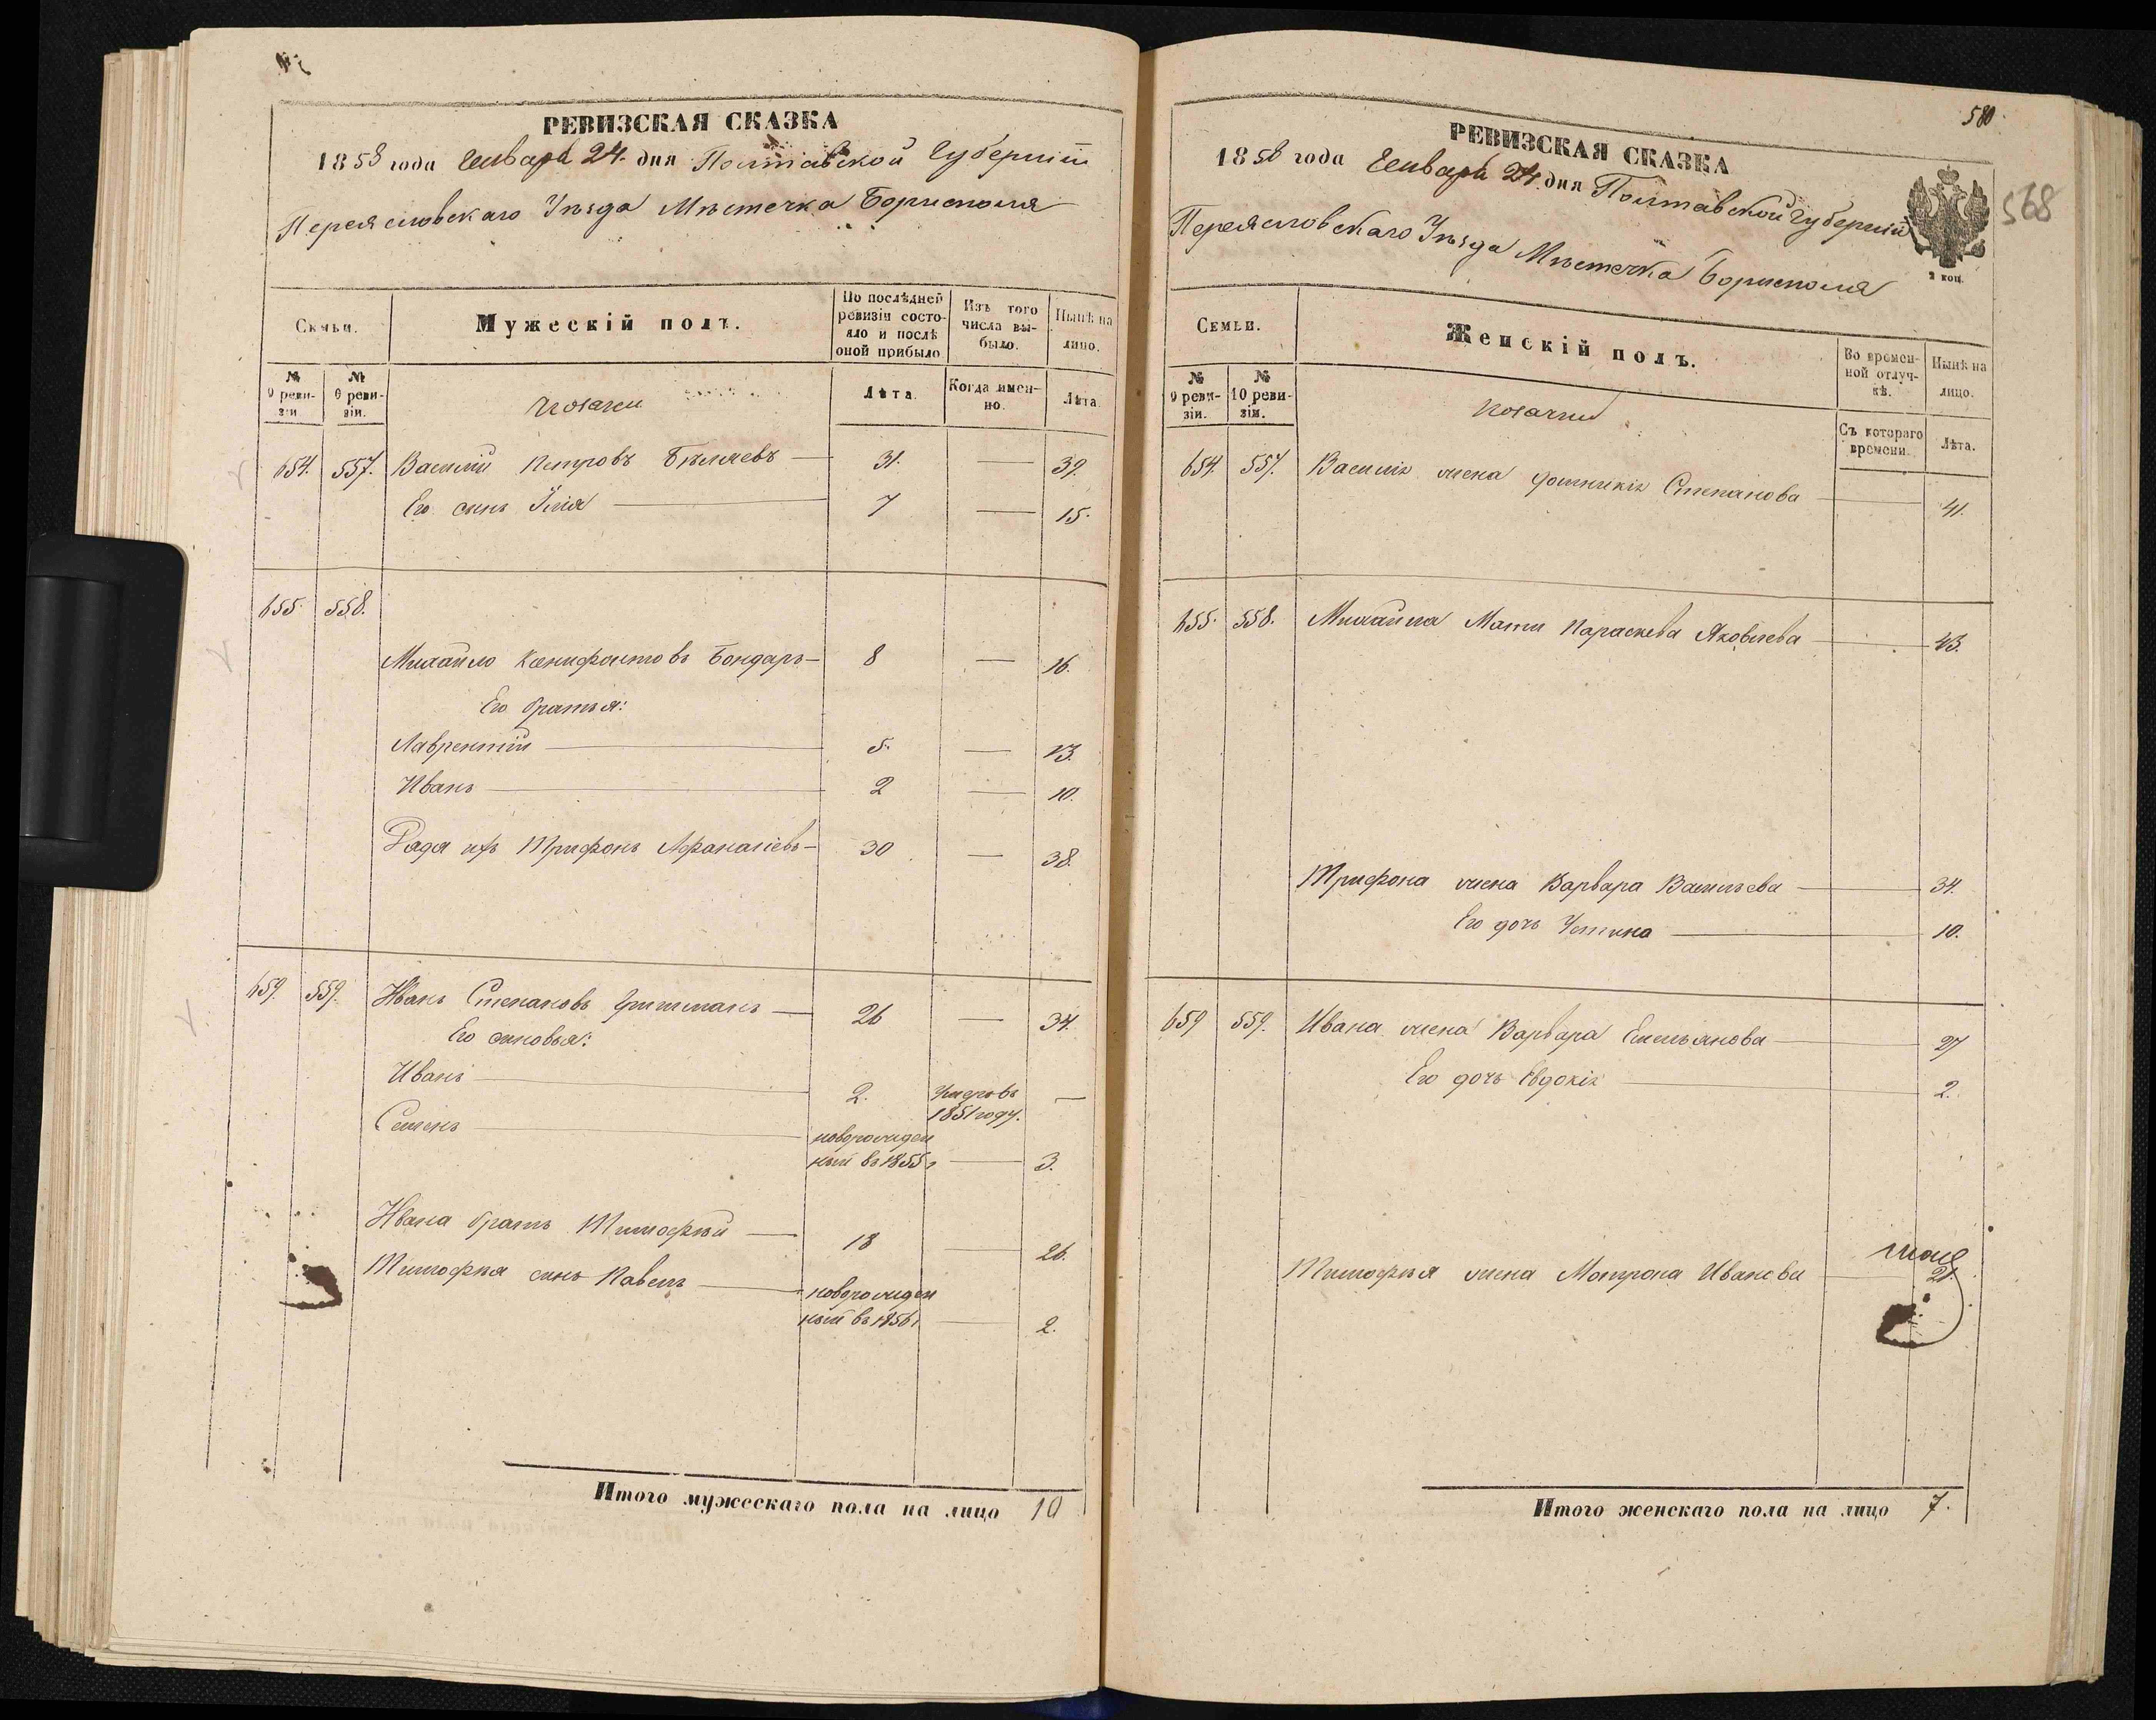 РЕВИЗСКАЯ СКАЗКА
1858 года Генваря 24. дня Полтавской Губерніи
Переясловскаго Уѣзда Мѣстечка Борисполя
Семьи.
Мужескій полъ.
По послѣдней ревизіи состояло и послѣ оной прибыло
Изъ того числа выбыло.
Нынѣ на лицо.
№ 9 ревизіи.
№ 0 ревизіи.
Козаки
Лѣта.
Когда именно.
Лѣта.
654. 557. Василій Петровъ Бѣляевъ — 31. — 39.
Его сынъ Илія — 7 — 15.
655. 558.
Михайло Ксенифонтовъ Бондарь — 8 — 16.
Его братья:
Лаврентій — 5. — 13.
Иванъ — 2 — 10.
Дядя ихъ Трифонъ Афанасіевъ — 30 — 38.
659. 559. Иванъ Степановъ — 26 — 34.
Его сыновья:
Иванъ — 2. Умеръ въ 1851 году. —
Семенъ — новорожденный въ 1855 г — 3.
Ивана братъ Тимофѣй — 18 — 26.
Тимофѣя сынъ Павелъ — новорожденный въ 1856 г — 2.
Итого мужескаго пола на лицо 10
580.
568
РЕВИЗСКАЯ СКАЗКА
1858 года Генваря 24. дня Полтавской Губерніи
Переясловскаго Уѣзда Мѣстечка Борисполя
2 коп.
Семьи.
Женскій полъ.
Во временной отлучкѣ.
Нынѣ на лицо.
№ 9 ревизіи.
№ 10 ревизіи.
Козачки
Съ котораго времени.
Лѣта.
654. 557. Василія жена Домникія Степанова — 41.
655. 558. Михайла Мати Параскева Яковлева — 43.
Трифона жена Варвара Васильева — 34.
Его дочь Устина — 10.
659 559. Ивана жена Варвара Емельянова — 27
Его дочь Евдокія — 2.
Тимофѣя жена Мотрона Иванова — 21.
Итого женскаго пола на лицо 7.